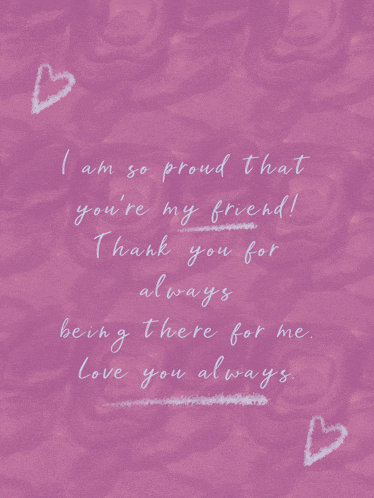 I am so proud that
you're my friend!
Thank you for
always
being there for me.
Love you always.